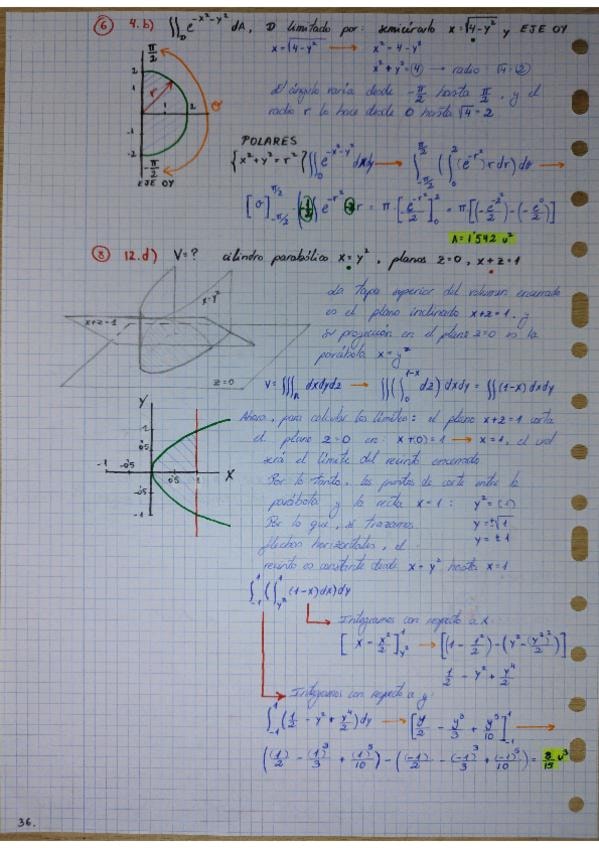 ⑥ 4.b) ∬_D e^{-x²-y²} dA, D limitado por: semicírculo x=√(4-y²) y EJE OY
x=√(4-y²) → x² = 4-y²
x²+y²=④ → radio: √4=②
El ángulo varía desde -π/2 hasta π/2, y el
radio r lo hace desde 0 hasta √4=2
π/2
2
1
-1
-2
r
1
2
θ
-π/2
EJE OY
POLARES
{x²+y²=r²} ∬_D e^{-x²-y²} dxdy → ∫_{-π/2}^{π/2} (∫_0^2 (e^{-r²}) r dr) dθ →
[θ]_{-π/2}^{π/2} · (-1/2) e^{-r²} 2r = π·[-e^{-r²}/2]_0^2 = π[(-e^{-2²}/2)-(-e^0/2)]
A=1'542 u²
⑧ 12.d) V=? cilindro parabólico x=y², planos z=0, x+z=1
x+z=1
x=y²
z=0
La tapa superior del volumen encerrado
es el plano inclinado x+z=1, y
su proyección en el plano z=0 es la
parábola x=y²
V=∭_R dxdydz → ∬(∫_0^{1-x} dz) dxdy = ∬(1-x)dxdy
Ahora, para calcular los límites: el plano x+z=1 corta
el plano z=0 en: x+(0)=1 → x=1, el cual
será el límite del recinto encerrado
Por lo tanto, los puntos de corte entre la
parábola y la recta x=1: y²=(1)
Por lo que, si trazamos y=±√1
flechas horizontales, el y=±1
recinto es constante desde x=y² hasta x=1
Y
1
0'5
-1 -0'5 0'5 1 X
-0'5
-1
∫_{-1}^1 (∫_{y²}^1 (1-x)dx)dy
Integramos con respecto a x:
[x - x²/2]_{y²}^1 → [(1 - 1²/2)-(y²-(y²)²/2)]
1/2 - y² + y⁴/2
Integramos con respecto a y:
∫_{-1}^1 (1/2 - y² + y⁴/2)dy → [y/2 - y³/3 + y⁵/10]_{-1}^1 →
((1)/2 - (1)³/3 + (1)⁵/10) - ((-1)/2 - (-1)³/3 + (-1)⁵/10) = 8/15 u³
36.